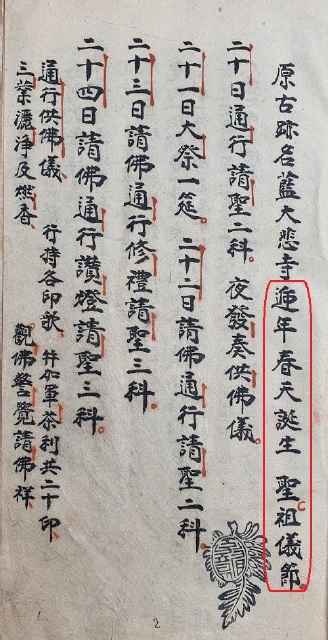 原古跡名藍大悲寺迎年春天誕生 聖祖儀節
二十日通行請聖二科 夜發奏供佛儀
二十一日大祭一筵 二十二日請佛通行請聖二科
二十三日請佛通行修禮請聖三科
二十四日請佛通行讚燈請聖三科
通行供佛儀 行持各印歌 并仙軍荼利共二十印
三業灑淨及燃香 觀佛警覺請佛祥
1
2